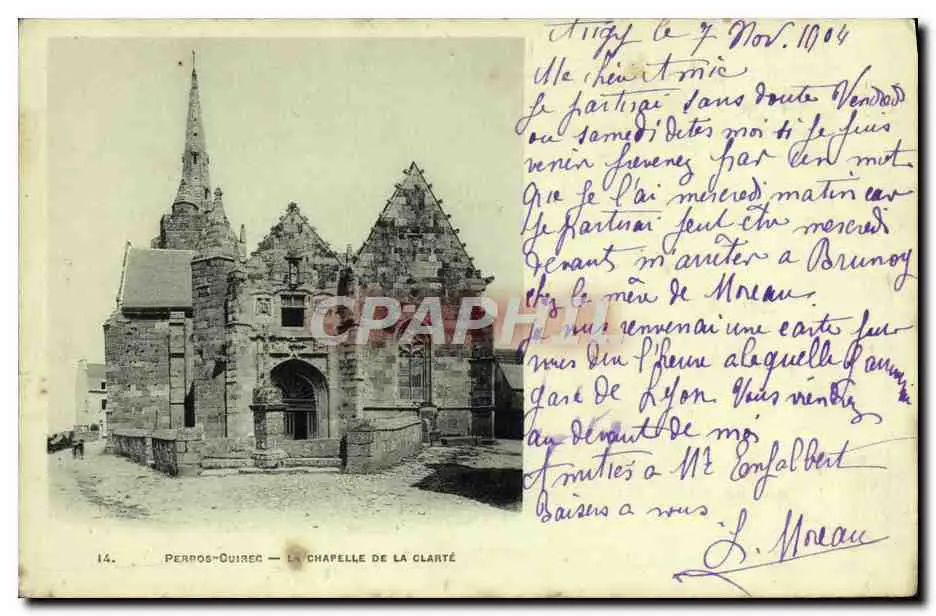 le 7 Nov. 1904
Ma chère Amie
Je partirai sans doute Vendredi
ou samedi dites moi si je puis
venir prevenez par un mot
que je l'ai mercredi matin car
je partirai peut etre mercredi
devant m'arreter a Brunoy
chez la mère de Moreau.
Je vous renverrai une carte pour
vous dire l'heure a laquelle j'arrive
gare de Lyon Vous viendrez
au devant de moi
Amitiés a Mr Enfalbert
Baisers a vous
L. Moreau
14. PERROS-GUIREC — LA CHAPELLE DE LA CLARTÉ
CPARHII